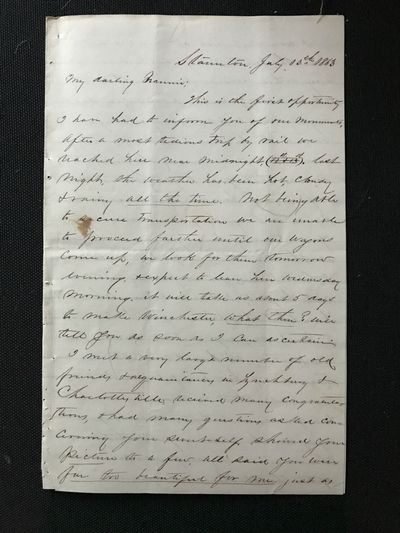 Staunton July 13th 1863
My darling Nannie;
This is the first opportunity
I have had to inform you of our movements,
After a most tedious trip by rail we
reached here near midnight, last
night, the weather has been hot, cloudy
& rainy all the time. Not being able
to secure transportation we are unable
to proceed farther until our wagons
come up, we look for them tomorrow
evening, & expect to leave here wednesday
morning, it will take us about 5 days
to make Winchester, what then? will
tell you as soon as I can ascertain
I met a very large number of old
friends & acquaintances in Lynchburg &
Charlottesville, received many congratula-
tions, & had many questions asked con-
cerning your sweet self, showed your
picture to a few, all said you were
far too beautiful for me, just as